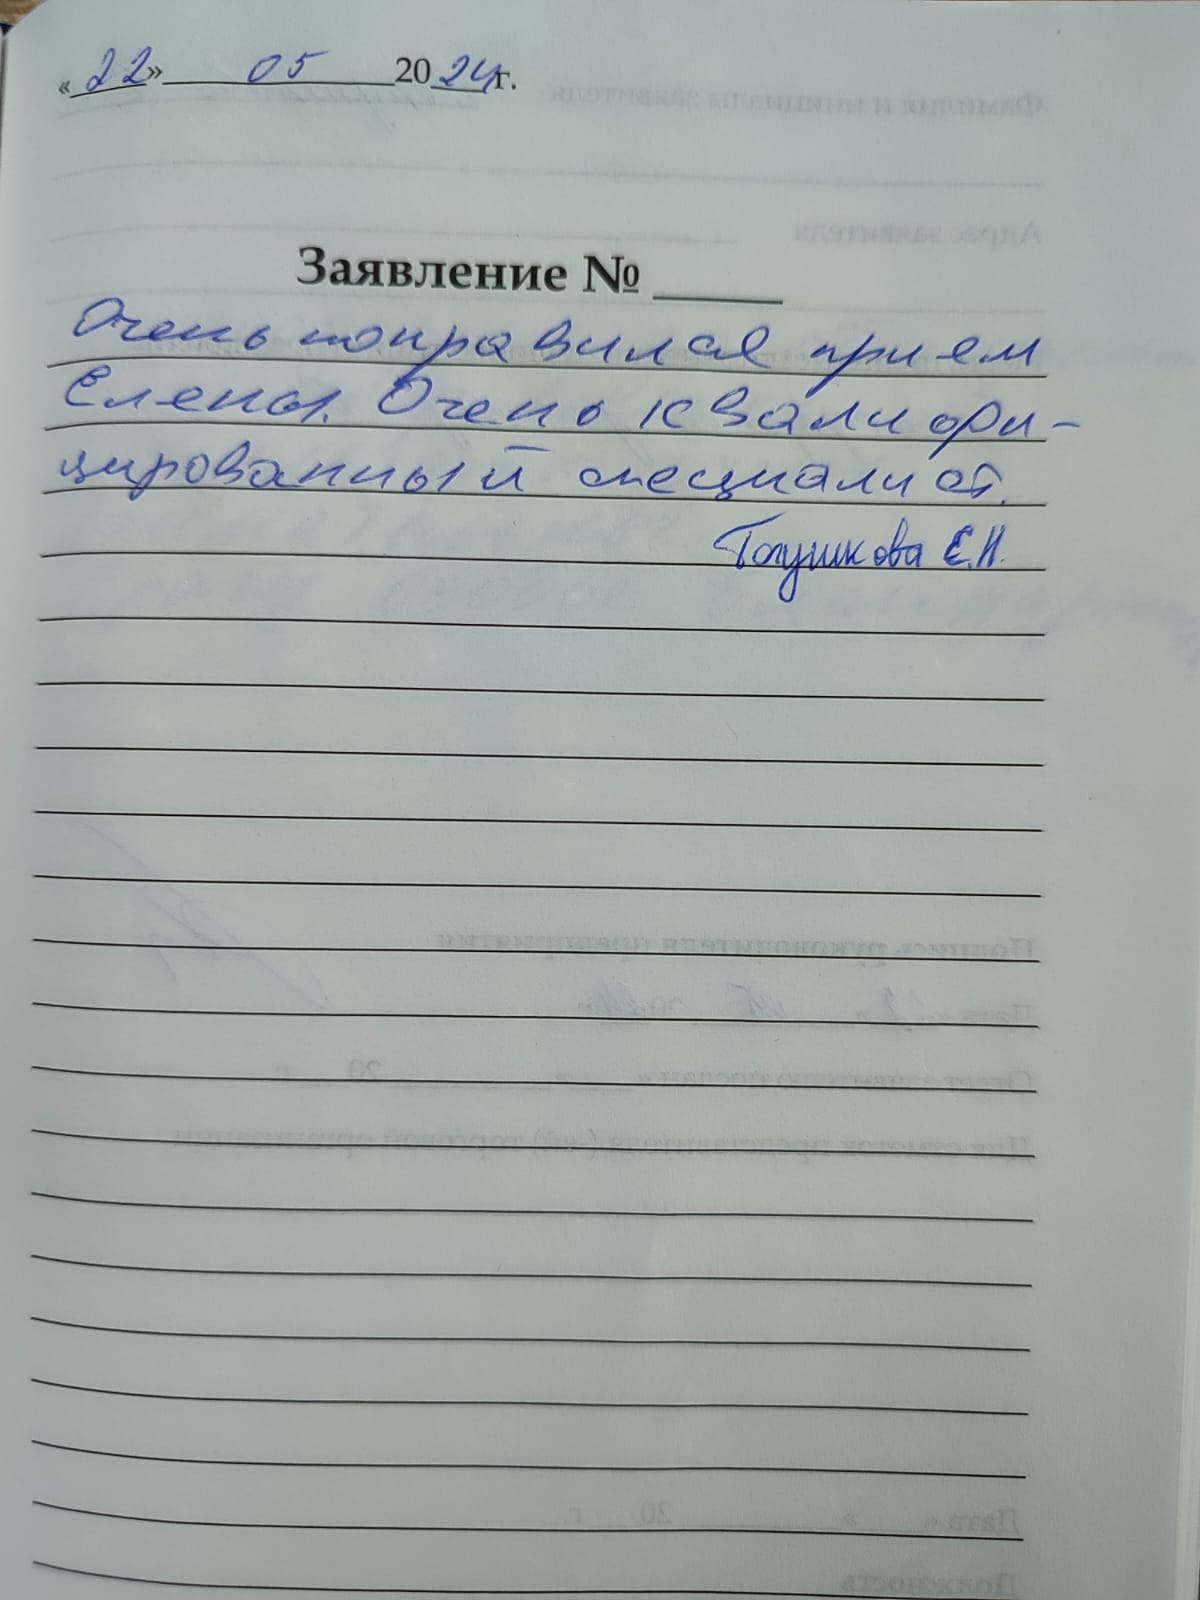 «22» 05 2024г.
Заявление №
Очень понравился прием
Елены. Очень квалифи-
цированный специалист.
Е.Н.